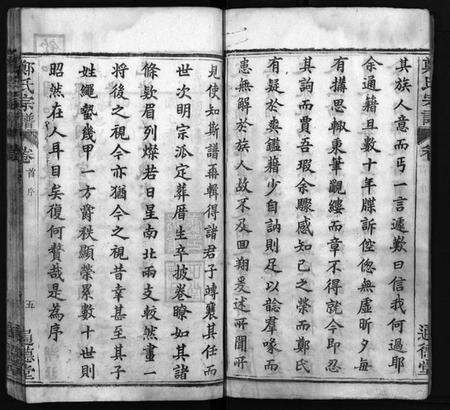 鄭氏宗譜
卷
通德堂
其族人意而丐一言遽歎曰信我何過耶
余通籍且數十年牒訴倥傯無虛昕夕每
有構思輒東筆觀縷而章不得就今即忍
其詢而賈吾瑕余驟感知己之榮而鄭氏
有疑於爽鑑藉少自訥則足以諗羣喙而
惠無解於族人故不及回翔爰述所聞所
見使知斯譜再輯得諸君子竱襄其任而
世次明宗派定葬曆生卒披卷瞭如其諸
條欵眉列燦若日星南北兩支較然畫一
將後之視今亦猶今之視昔幸甚至其子
姓繩蟄幾甲一方爵秩顯榮累數十世則
昭然在人耳目矣復何贅哉是為序
鄭氏宗譜
卷首序
五
通德堂